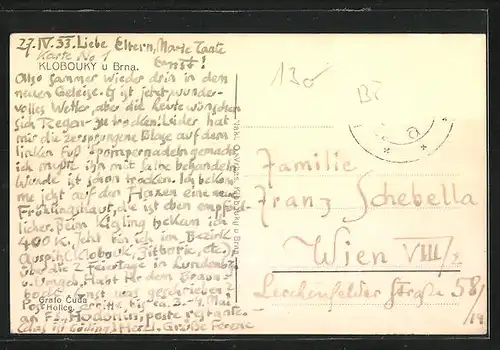 27.IV.33. Liebe Eltern, Marie Tante
Karte No 1 Ernst!
KLOBOUKY u Brna.
Also sammer wieder drin in den
neuen Geleise. Es ist jetzt wunder-
volles Wetter, aber die Leute wünschen
sich Regen - zu trocken! Leider hat
mir die zersprungene Blase auf dem
linken Fuß gemacht,
ich mußte ihn mit Salbe behandeln
Wunde ist schon trocken. Ich bekom-
me jetzt auf den Haxen eine neue
Frühlingshaut, die ist eben empfind-
licher. Beim Kigling bekam ich
400 K. Jetzt bin ich im Bezirk
Auspitz (Klobouk, etc.)
über die 2 Feiertage in Lundenbg
u. Umgeb. Habt Ihr dem
sonst was geschrieben?
Post erreicht mich ca. 3.-4. Mai
an F. S. Hodonin, poste restante.
(das ist Göding) Herzl. Grüße Ferenc
Grafo Čuda
Holice
130
Familie
Franz Schebella
Wien VIII/2
Lerchenfelder Straße 58/
/19